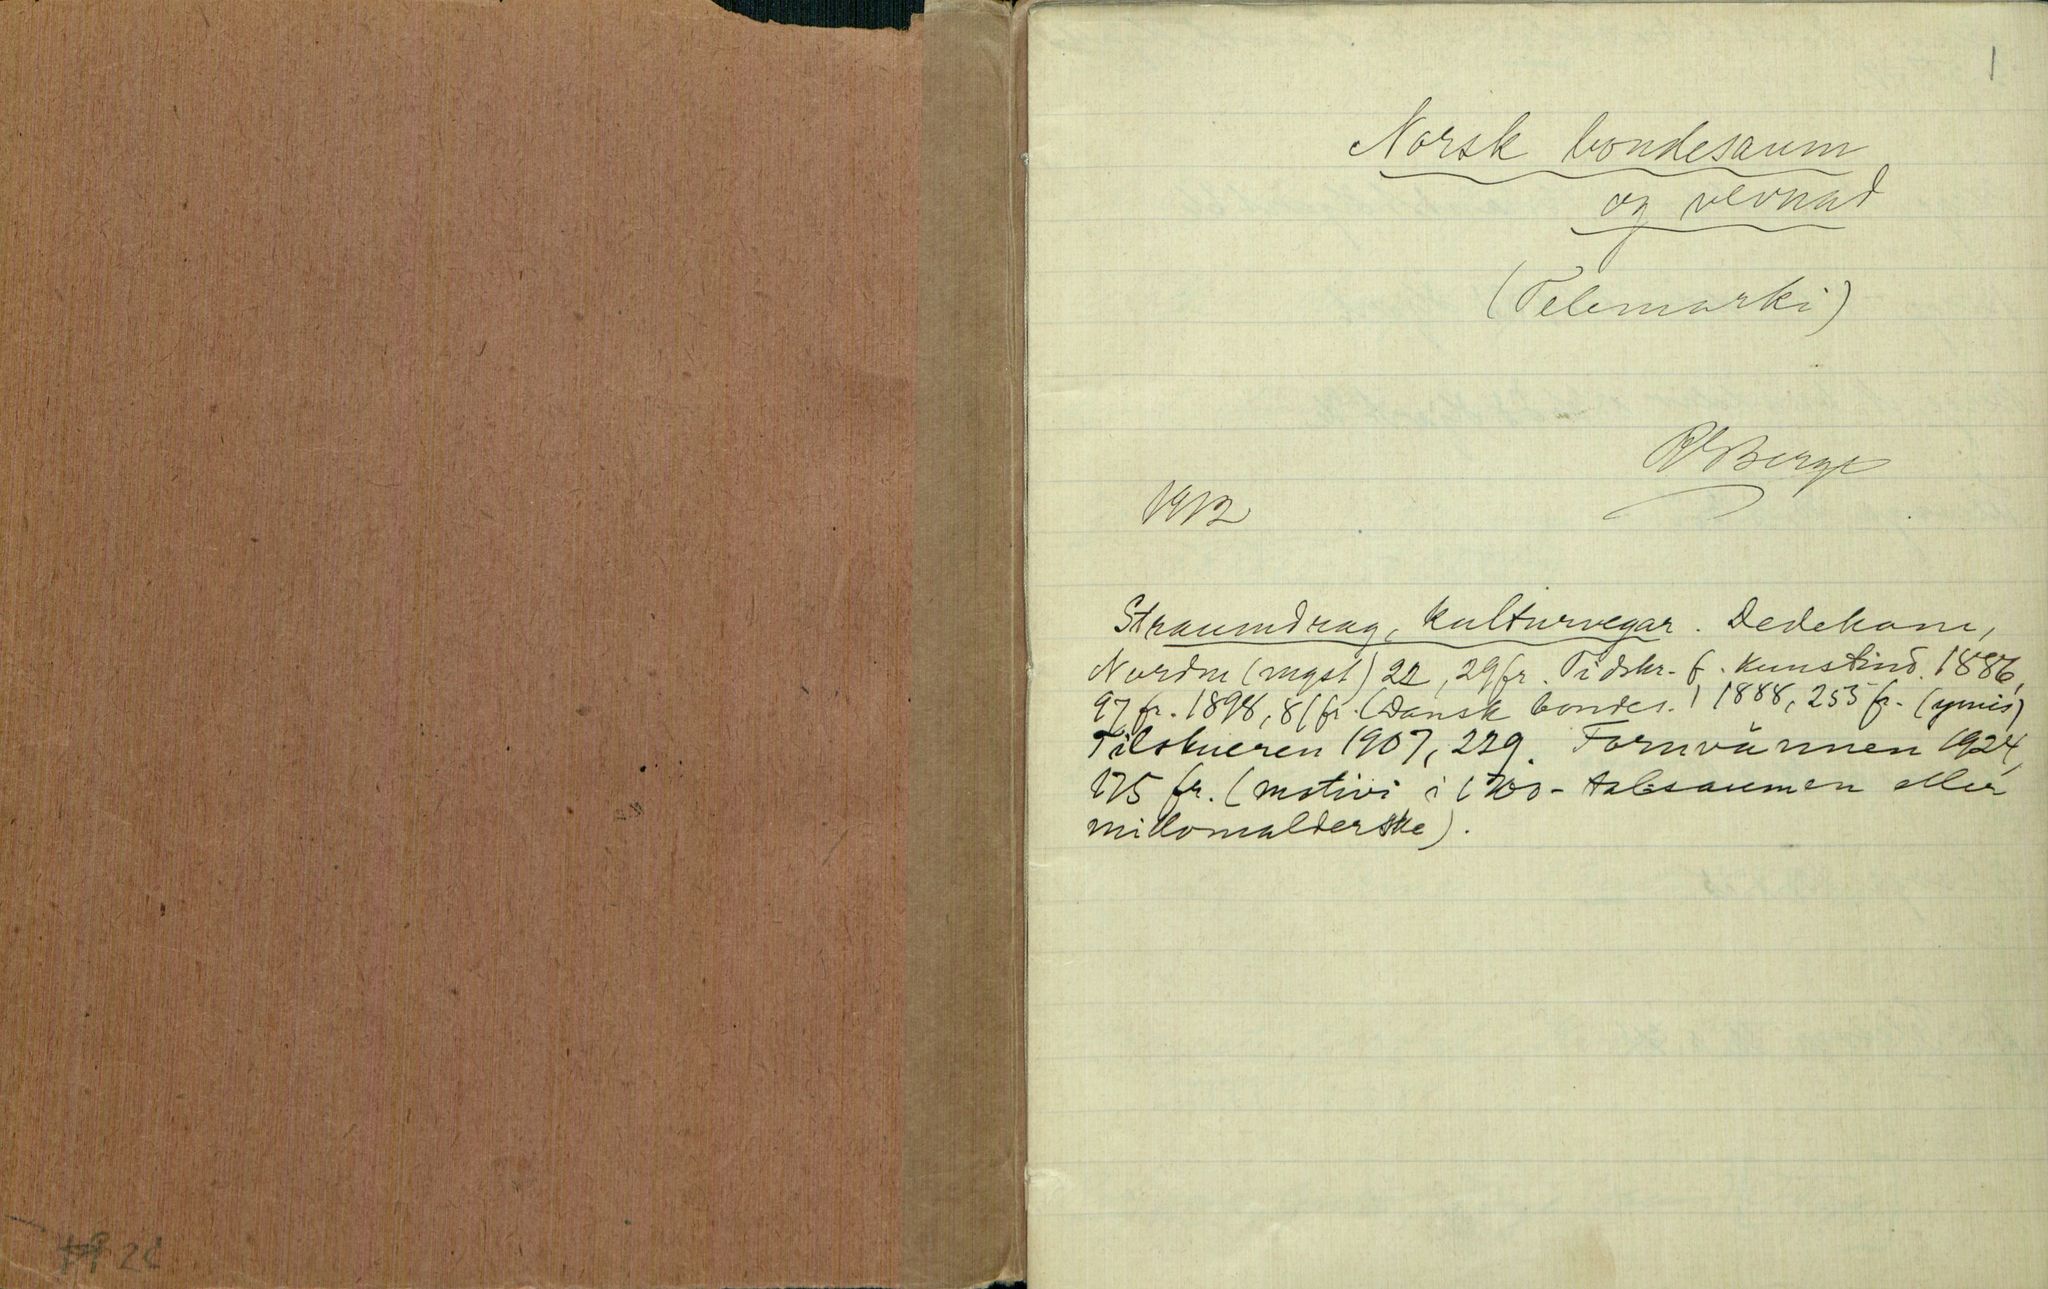 1
Norsk bondesaum
og vevnad
(Telemarki)
RBerge
1912
Straumdrag, kulturvegar. Dedekam,
Nordm (mgst) 22, 29 fr. Tidskr. f. kunstind. 1886,
97 fr. 1898, 81 fr. (Dansk bondes.) 1888, 255 fr. (ymis)
Tilskueren 1907, 229. Fornvännen 1924,
175 fr. (motivi i 1700-talssaumen eller
millomalderske).
22